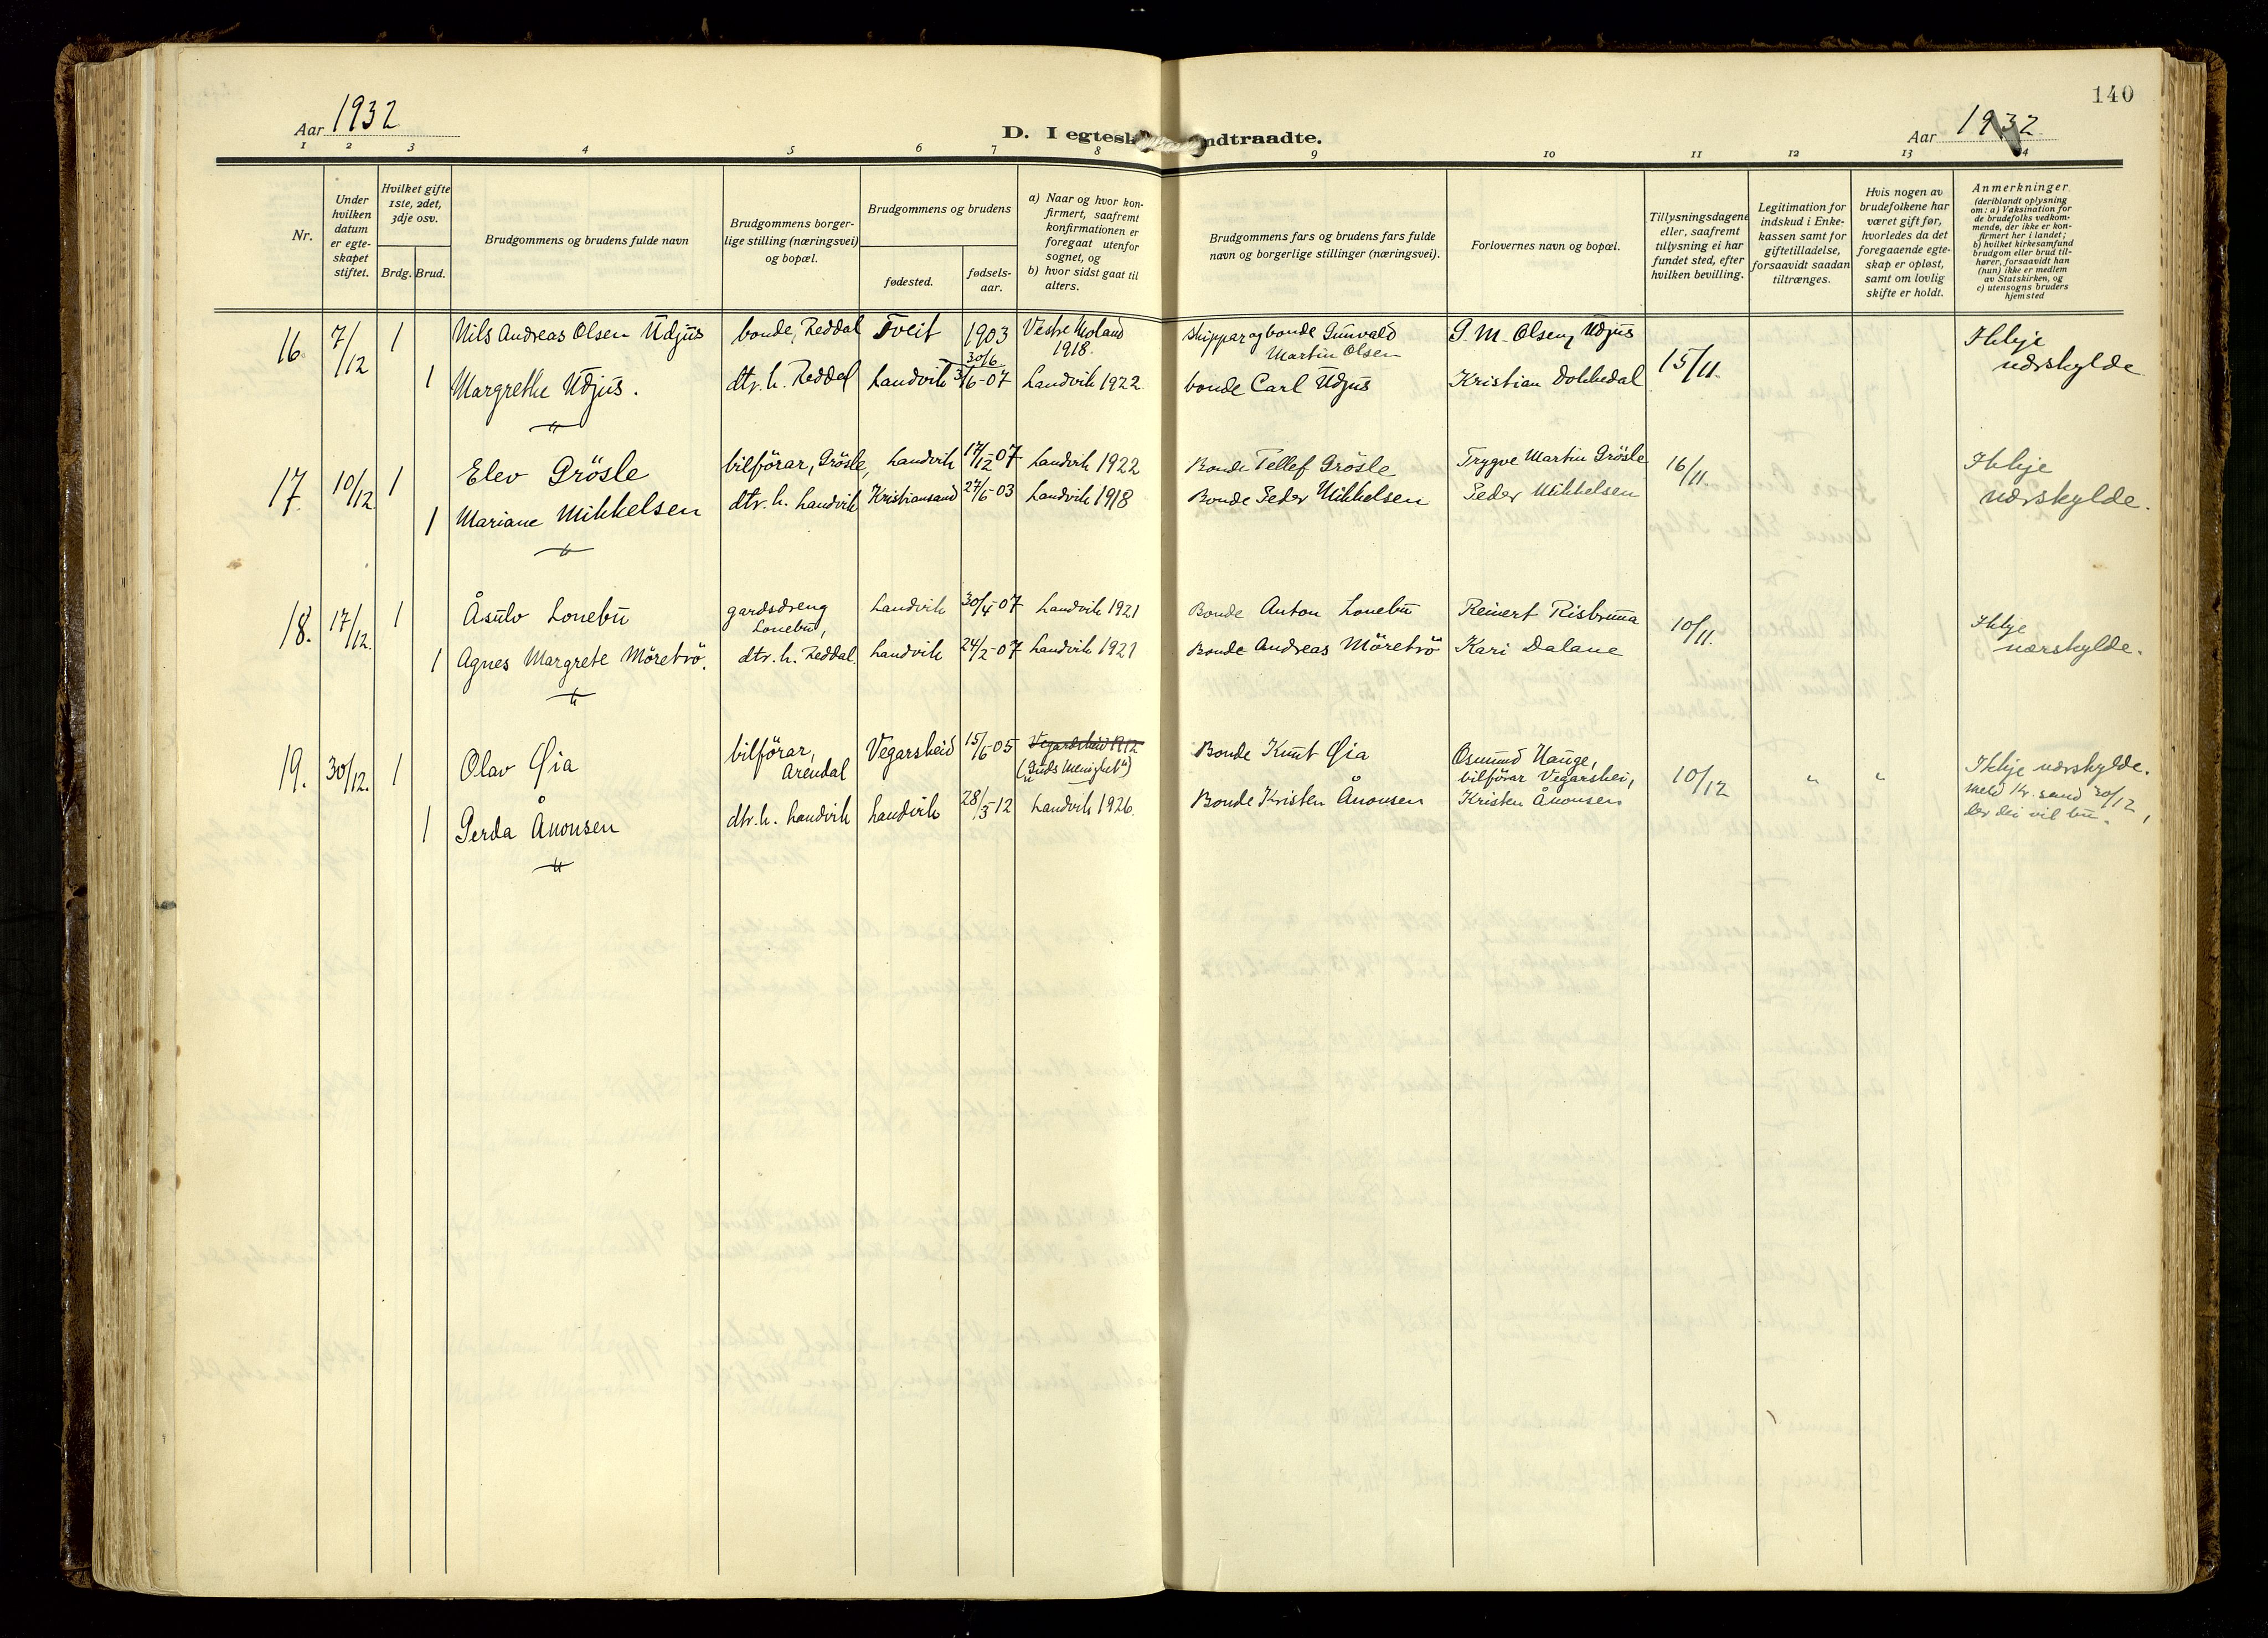 140
Aar 1932
D. I egtesk ndtraadte.
Aar 1932
1 2 3 4 5 6 7 8 9 10 11 12 13 14
Nr.
Under hvilken datum er egteskapet stiftet.
Hvilket gifte 1ste, 2det, 3dje osv.
Brdg. Brud.
Brudgommens og brudens fulde navn
Brudgommens borgerlige stilling (næringsvei) og bopæl.
Brudgommens og brudens
fødested.
fødselsaar.
a) Naar og hvor konfirmert, saafremt konfirmationen er foregaat utenfor sognet, og
b) hvor sidst gaat til alters.
Brudgommens fars og brudens fars fulde navn og borgerlige stillinger (næringsvei).
Forlovernes navn og bopæl.
Tillysningsdagene eller, saafremt tillysning ei har fundet sted, efter hvilken bevilling.
Legitimation for indskud i Enkekassen samt for giftetilladelse, forsaavidt saadan tiltrænges.
Hvis nogen av brudefolkene har været gift før, hvorledes da det foregaaende egteskap er opløst, samt om lovlig skifte er holdt.
Anmerkninger
(deriblandt oplysning om: a) Vaksination for de brudefolks vedkommende, der ikke er konfirmert her i landet;
b) hvilket kirkesamfund brudgom eller brud tilhører, forsaavidt han (hun) ikke er medlem av Statskirken, og
c) utensogns bruders hjemsted
16. 7/12 1 Nils Andreas Olsen Udjus bonde, Reddal Tveit 1903 30/6 Vestre Moland 1918. Skippar og bonde Gunvald Martin Olsen G. M. Olsen, Udjus 15/11. Ikkje nærskylde
1 Margrethe Udjus. dtr. h. Reddal Landvik 3/6-07 Landvik 1922 bonde Carl Udjus Kristian Dokkedal
17. 10/12 1 Elev Grösle bilförar, Grösle, Landvik 17/12-07 Landvik 1922 Bonde Tellef Grösle Trygve Martin Grösle 16/11. Ikkje nærskylde.
1 Mariane Mikkelsen dtr. h. Landvik Kristiansand 27/6-03 Landvik 1918 Bonde Peder Mikkelsen Peder Mikkelsen
18. 17/12. 1 Åsulv Lonebu gardsdreng Lonebu, Landvik 30/4-07 Landvik 1921 Bonde Anton Lonebu Reinert Risbruna 10/11. Ikkje nærskylde.
1 Agnes Margrete Möretrö. dtr. h. Reddal. Landvik 24/2-07 Landvik 1921 Bonde Andreas Möretrö Kari Dalane
19. 30/12. 1 Olav Øia bilförar, Arendal Vegarsheid 15/6-05 Vegarsheid 1912 ("Guds Menighet") Bonde Knut Øia Osmund Hauge, bilförar Vegarshei, 10/12 " " Ikkje nærskylde. Meld Kr.sand 30/12, der dei vil bu.
1 Gerda Ånonsen dtr. h. Landvik Landvik 28/3-12 Landvik 1926. Bonde Kristen Ånonsen Kristen Ånonsen